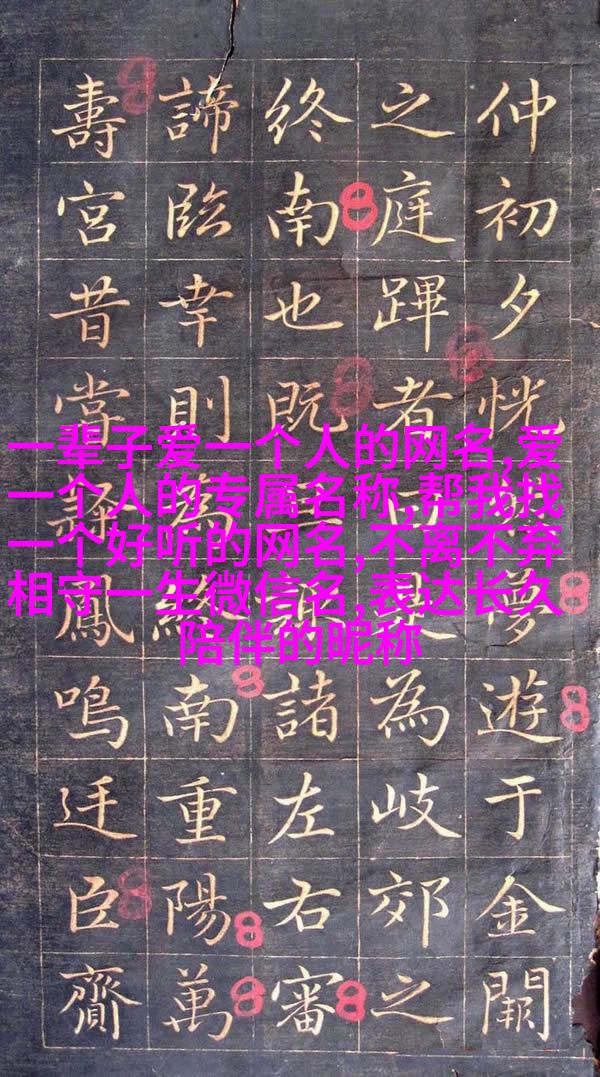 仲初夕恍夢遊于金闕
之庭蹕者為岐郊之
終南也既諸左右審
諦臨幸則為終南重陽萬
壽宮昔嘗鳳鳴迋臣齎
一辈子爱一个人的网名,爱
一个人的专属名称,帮我找
一个好听的网名,不离不弃
相守一生微信名,表达长久
陪伴的昵称